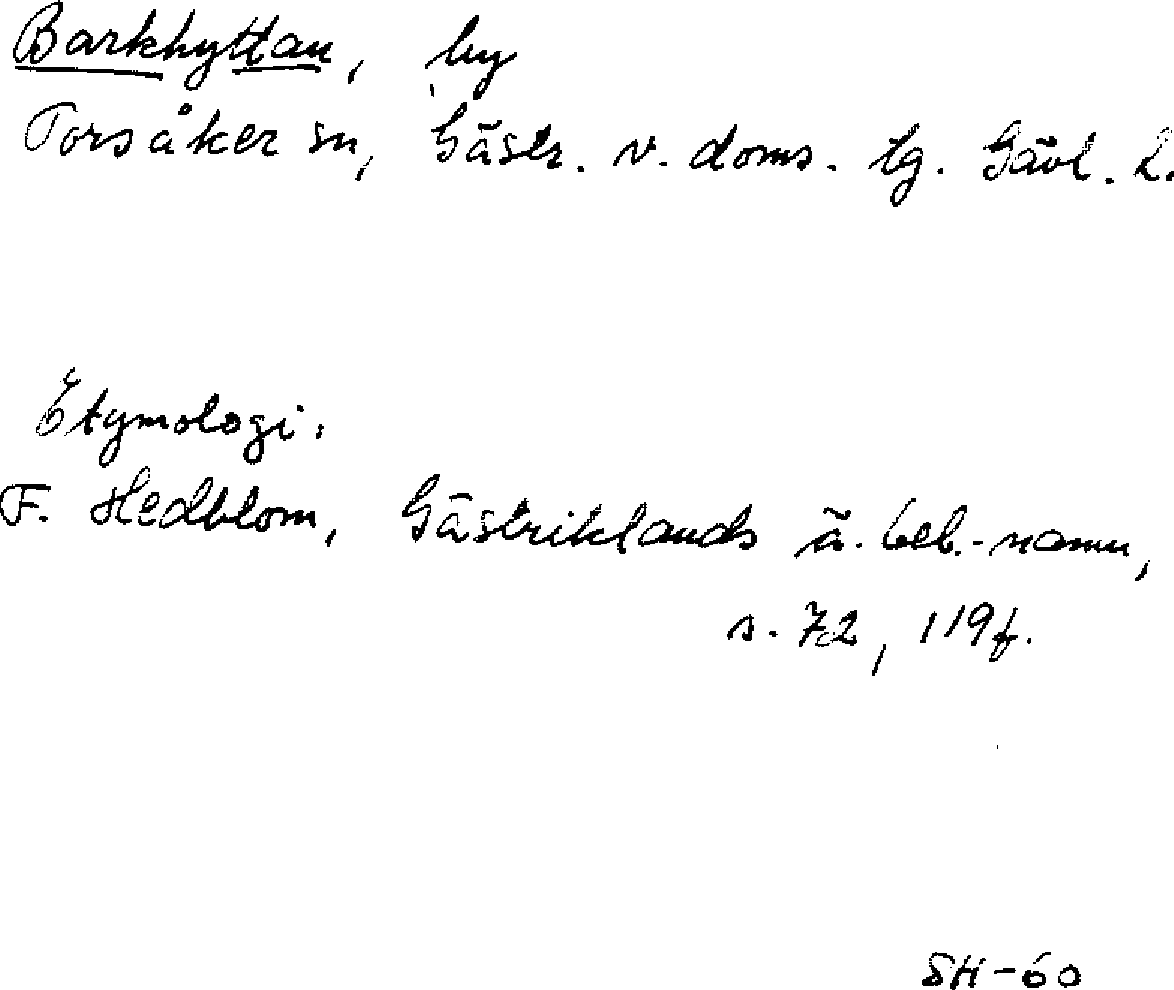 Barkhyttan, by
Torsåker sn, Gästr. v. doms. tg. Gävl. l.
Etymologi.
F. Hedblom, Gästriklands ä. beb.-namn,
s. 72, 119f.
SH-60